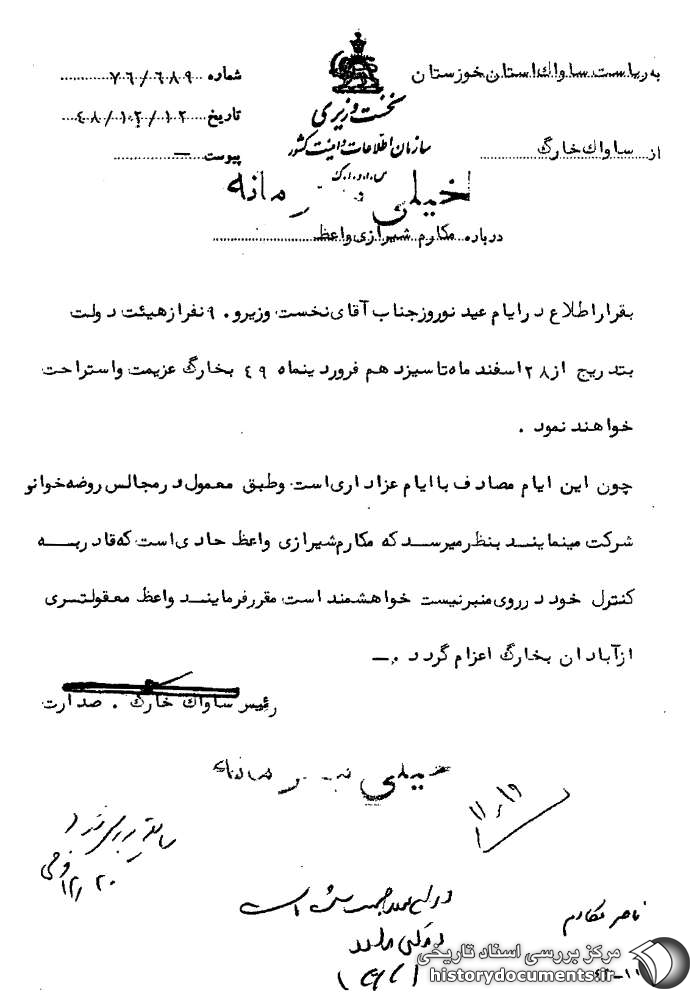 به ریاست ساواک استان خوزستان
شماره ۷۶/۶۸۹
نخست وزیری
تاریخ ۴۸/۱۲/۱۲
سازمان اطلاعات و امنیت کشور
از ساواک خارگ
پیوست —
س.ا.و.ا.ک
خیلی محرمانه
درباره مکارم شیرازی واعظ
بقرار اطلاع در ایام عید نوروز جناب آقای نخست وزیر و ۹ نفر از هیئت دولت
بتدریج از ۲۸ اسفند ماه تا سیزدهم فروردینماه ۴۹ بخارگ عزیمت و استراحت
خواهند نمود .
چون این ایام مصادف با ایام عزاداری است و طبق معمول در مجالس روضه خوانو
شرکت مینمایند بنظر میرسد که مکارم شیرازی واعظ حادی است که قادر به
کنترل خود در روی منبر نیست خواهشمند است مقرر فرمایند واعظ معقولتری
از آبادان بخارگ اعزام گردد .—
رئیس ساواک خارگ . صدارت
خیلی محرمانه
۱۲/۲۰
ناصر مکارم
مرکز بررسی اسناد تاریخی
historydocuments.ir